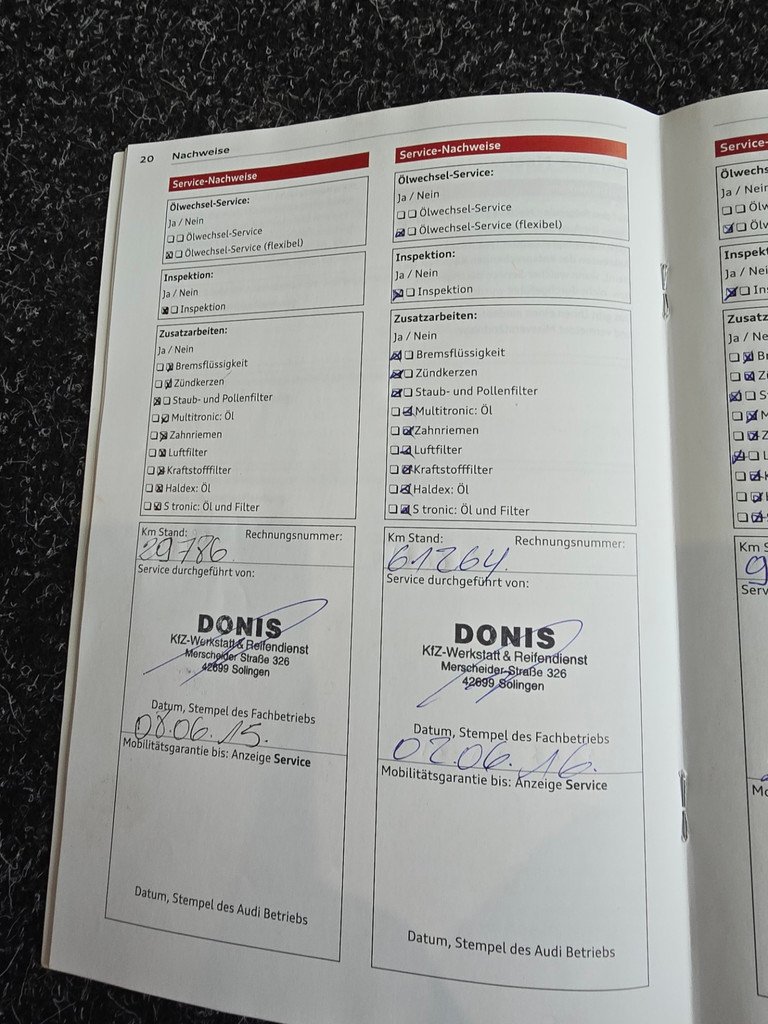 20 Nachweise
Service-Nachweise
Ölwechsel-Service:
Ja / Nein
Ölwechsel-Service
Ölwechsel-Service (flexibel)
Inspektion:
Ja / Nein
Inspektion
Zusatzarbeiten:
Ja / Nein
Bremsflüssigkeit
Zündkerzen
Staub- und Pollenfilter
Multitronic: Öl
Zahnriemen
Luftfilter
Kraftstofffilter
Haldex: Öl
S tronic: Öl und Filter
Km Stand: Rechnungsnummer:
29786
Service durchgeführt von:
DONIS
KfZ-Werkstatt & Reifendienst
Merscheider Straße 326
42699 Solingen
Datum, Stempel des Fachbetriebs
08.06.15.
Mobilitätsgarantie bis: Anzeige Service
Datum, Stempel des Audi Betriebs
Service-Nachweise
Ölwechsel-Service:
Ja / Nein
Ölwechsel-Service
Ölwechsel-Service (flexibel)
Inspektion:
Ja / Nein
Inspektion
Zusatzarbeiten:
Ja / Nein
Bremsflüssigkeit
Zündkerzen
Staub- und Pollenfilter
Multitronic: Öl
Zahnriemen
Luftfilter
Kraftstofffilter
Haldex: Öl
S tronic: Öl und Filter
Km Stand: Rechnungsnummer:
61264
Service durchgeführt von:
DONIS
KfZ-Werkstatt & Reifendienst
Merscheider Straße 326
42699 Solingen
Datum, Stempel des Fachbetriebs
02.06.16.
Mobilitätsgarantie bis: Anzeige Service
Datum, Stempel des Audi Betriebs
Service-
Ölwechs
Ja / Nein
Ölw
Ölw
Inspekt
Ja / Nei
Ins
Zusatz
Ja / Ne
Br
Zü
S
M
Z
L
Km S
9
Serv
Mo